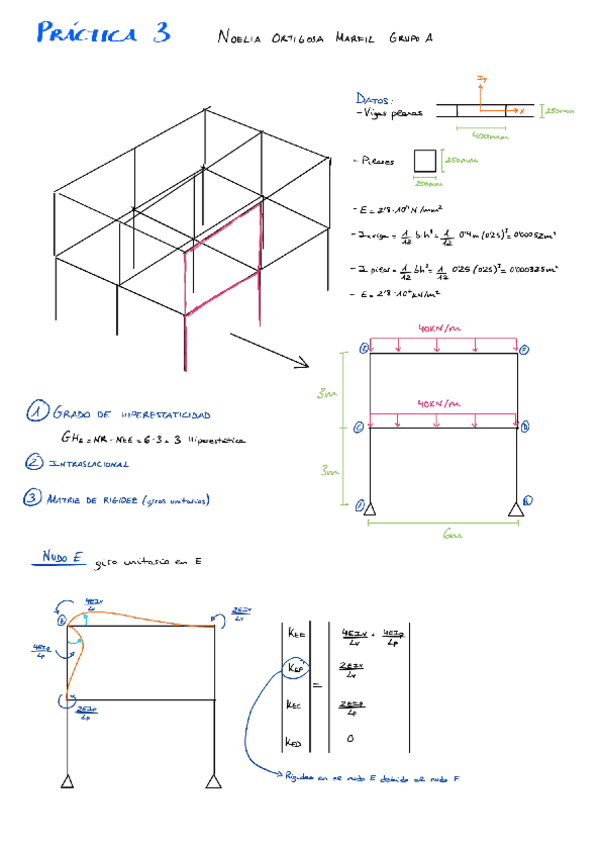 PRÁCTICA 3 NOELIA ORTIGOSA MARFIL GRUPO A
DATOS:
- Vigas planas
Iy
x
250mm
400mm
- Pilares
250mm
250mm
- E = 2'8·10⁴ N/mm²
- I viga = 1/12 b·h³ = 1/12 0'4m (0'25)³ = 0'00052m⁴
- I pilar = 1/12 bh³ = 1/12 0'25 (0'25)³ = 0'000325m⁴
- E = 2'8·10⁷ kN/m²
40KN/m
E
F
3m
40KN/m
C
D
3m
6m
1 GRADO DE HIPERESTATICIDAD
GHE = NR - NEE = 6-3 = 3 Hiperestática
2 INTRASLACIONAL
3 MATRIZ DE RIGIDEZ (giros unitarios)
NUDO E giro unitario en E
4EIv/Lv
2EIv/Lv
4EIp/Lp
2EIp/Lp
KEE 4EIv/Lv + 4EIp/Lp
KEF 2EIv/Lv
=
KEC 2EIp/Lp
KED 0
Rigidez en el nudo E debido al nudo F